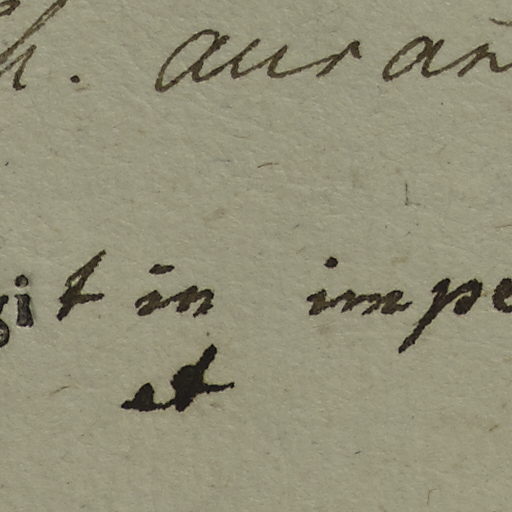 h. auran
git in impe
et